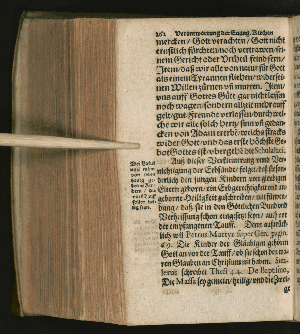 262 Verantwortung der Evang. Kirchen
mercken / Gott verachten / Gott nicht
ernstlich fürchten / noch vertrawen / sei-
nem Gericht oder Vrtheil feind seyn /
Item / daß wir alle von natur für Gott
als einem Tyrannen fliehen / wider sei-
nen Willen zürnen vñ murren. Item
vns auff Gottes Güte gar nicht lassen
noch wagen / sondern allzeit mehr auff
gelt / gut / Freunde verlassen / durch wel-
che wir alle solch hertz / sinn vñ gedan-
cken von Adam ererbt / welchs stracks
wider Gott vnd das erste höchste Ge-
bot Gottes ist / vbergehẽ die Scholastici.
Auß dieser Verkleinerung vnnd Ver-
nichtigung der Erbsünde / folget daß sie son-
derlich den jungen Kindern von gleubigen
Eltern geborn / ein Erbgerechtigkeit und an-
geborne Heiligkeit zuschreiben / mit fürwen-
dung / daß sie in den Göttlichen Bund vnd
Verheissung schon eingefast seyn / auch vor
der empfangenen Tauff. Denn außdrück-
lich wil Petrus Martyr super Gen. pagin.
69. Die Kinder der Gläubigen gehören
Gott an vor der Tauff / ob sie schon des wa-
ren Glauben an Christum nit haben. Sim-
lerus schreibet Thesi 44. De Baptismo,
Die Massa sey gemein / heilig / vnd die Zwei-
ge